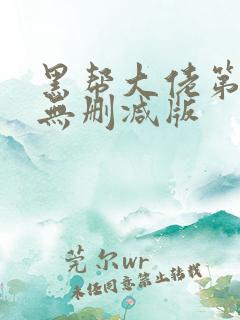 黑帮大佬第
无删减版
莞尔wr
未经同意禁止转载